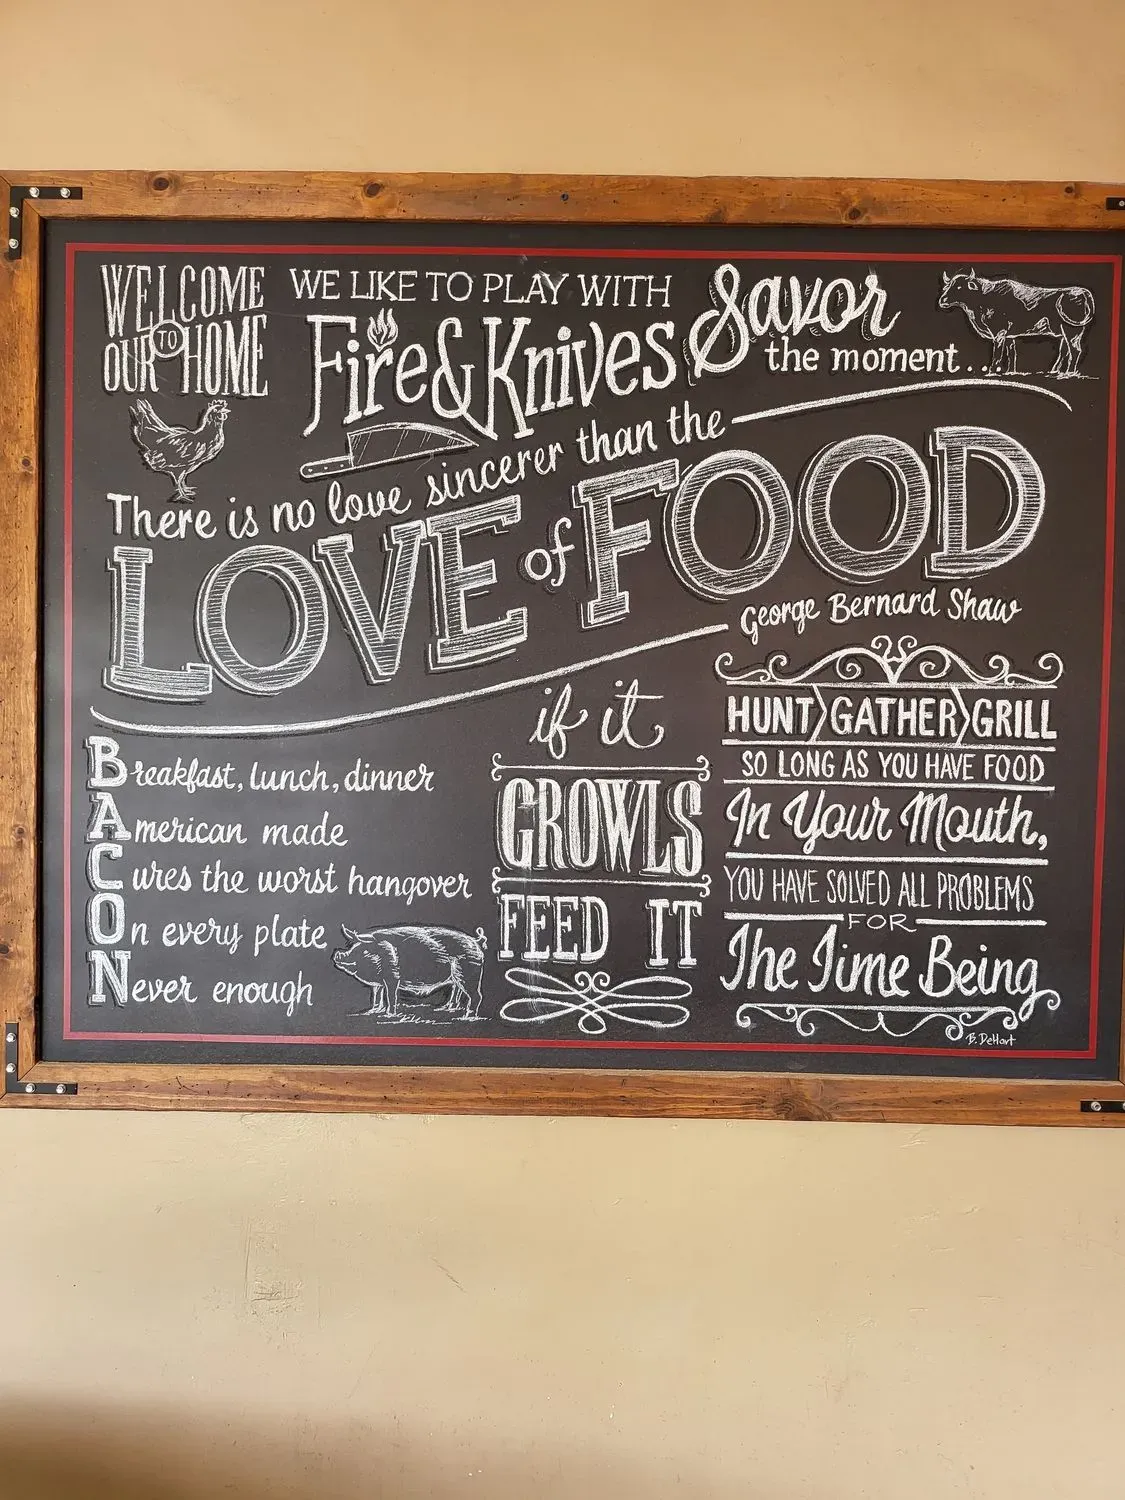 WELCOME
TO
OUR HOME
WE LIKE TO PLAY WITH
Fire & Knives
Savor
the moment...
There is no love sincerer than the
LOVE of FOOD
George Bernard Shaw
Breakfast, lunch, dinner
American made
Cures the worst hangover
On every plate
Never enough
if it
GROWLS
FEED IT
HUNT GATHER GRILL
SO LONG AS YOU HAVE FOOD
In Your Mouth,
YOU HAVE SOLVED ALL PROBLEMS
FOR
The Time Being
B. DeHart